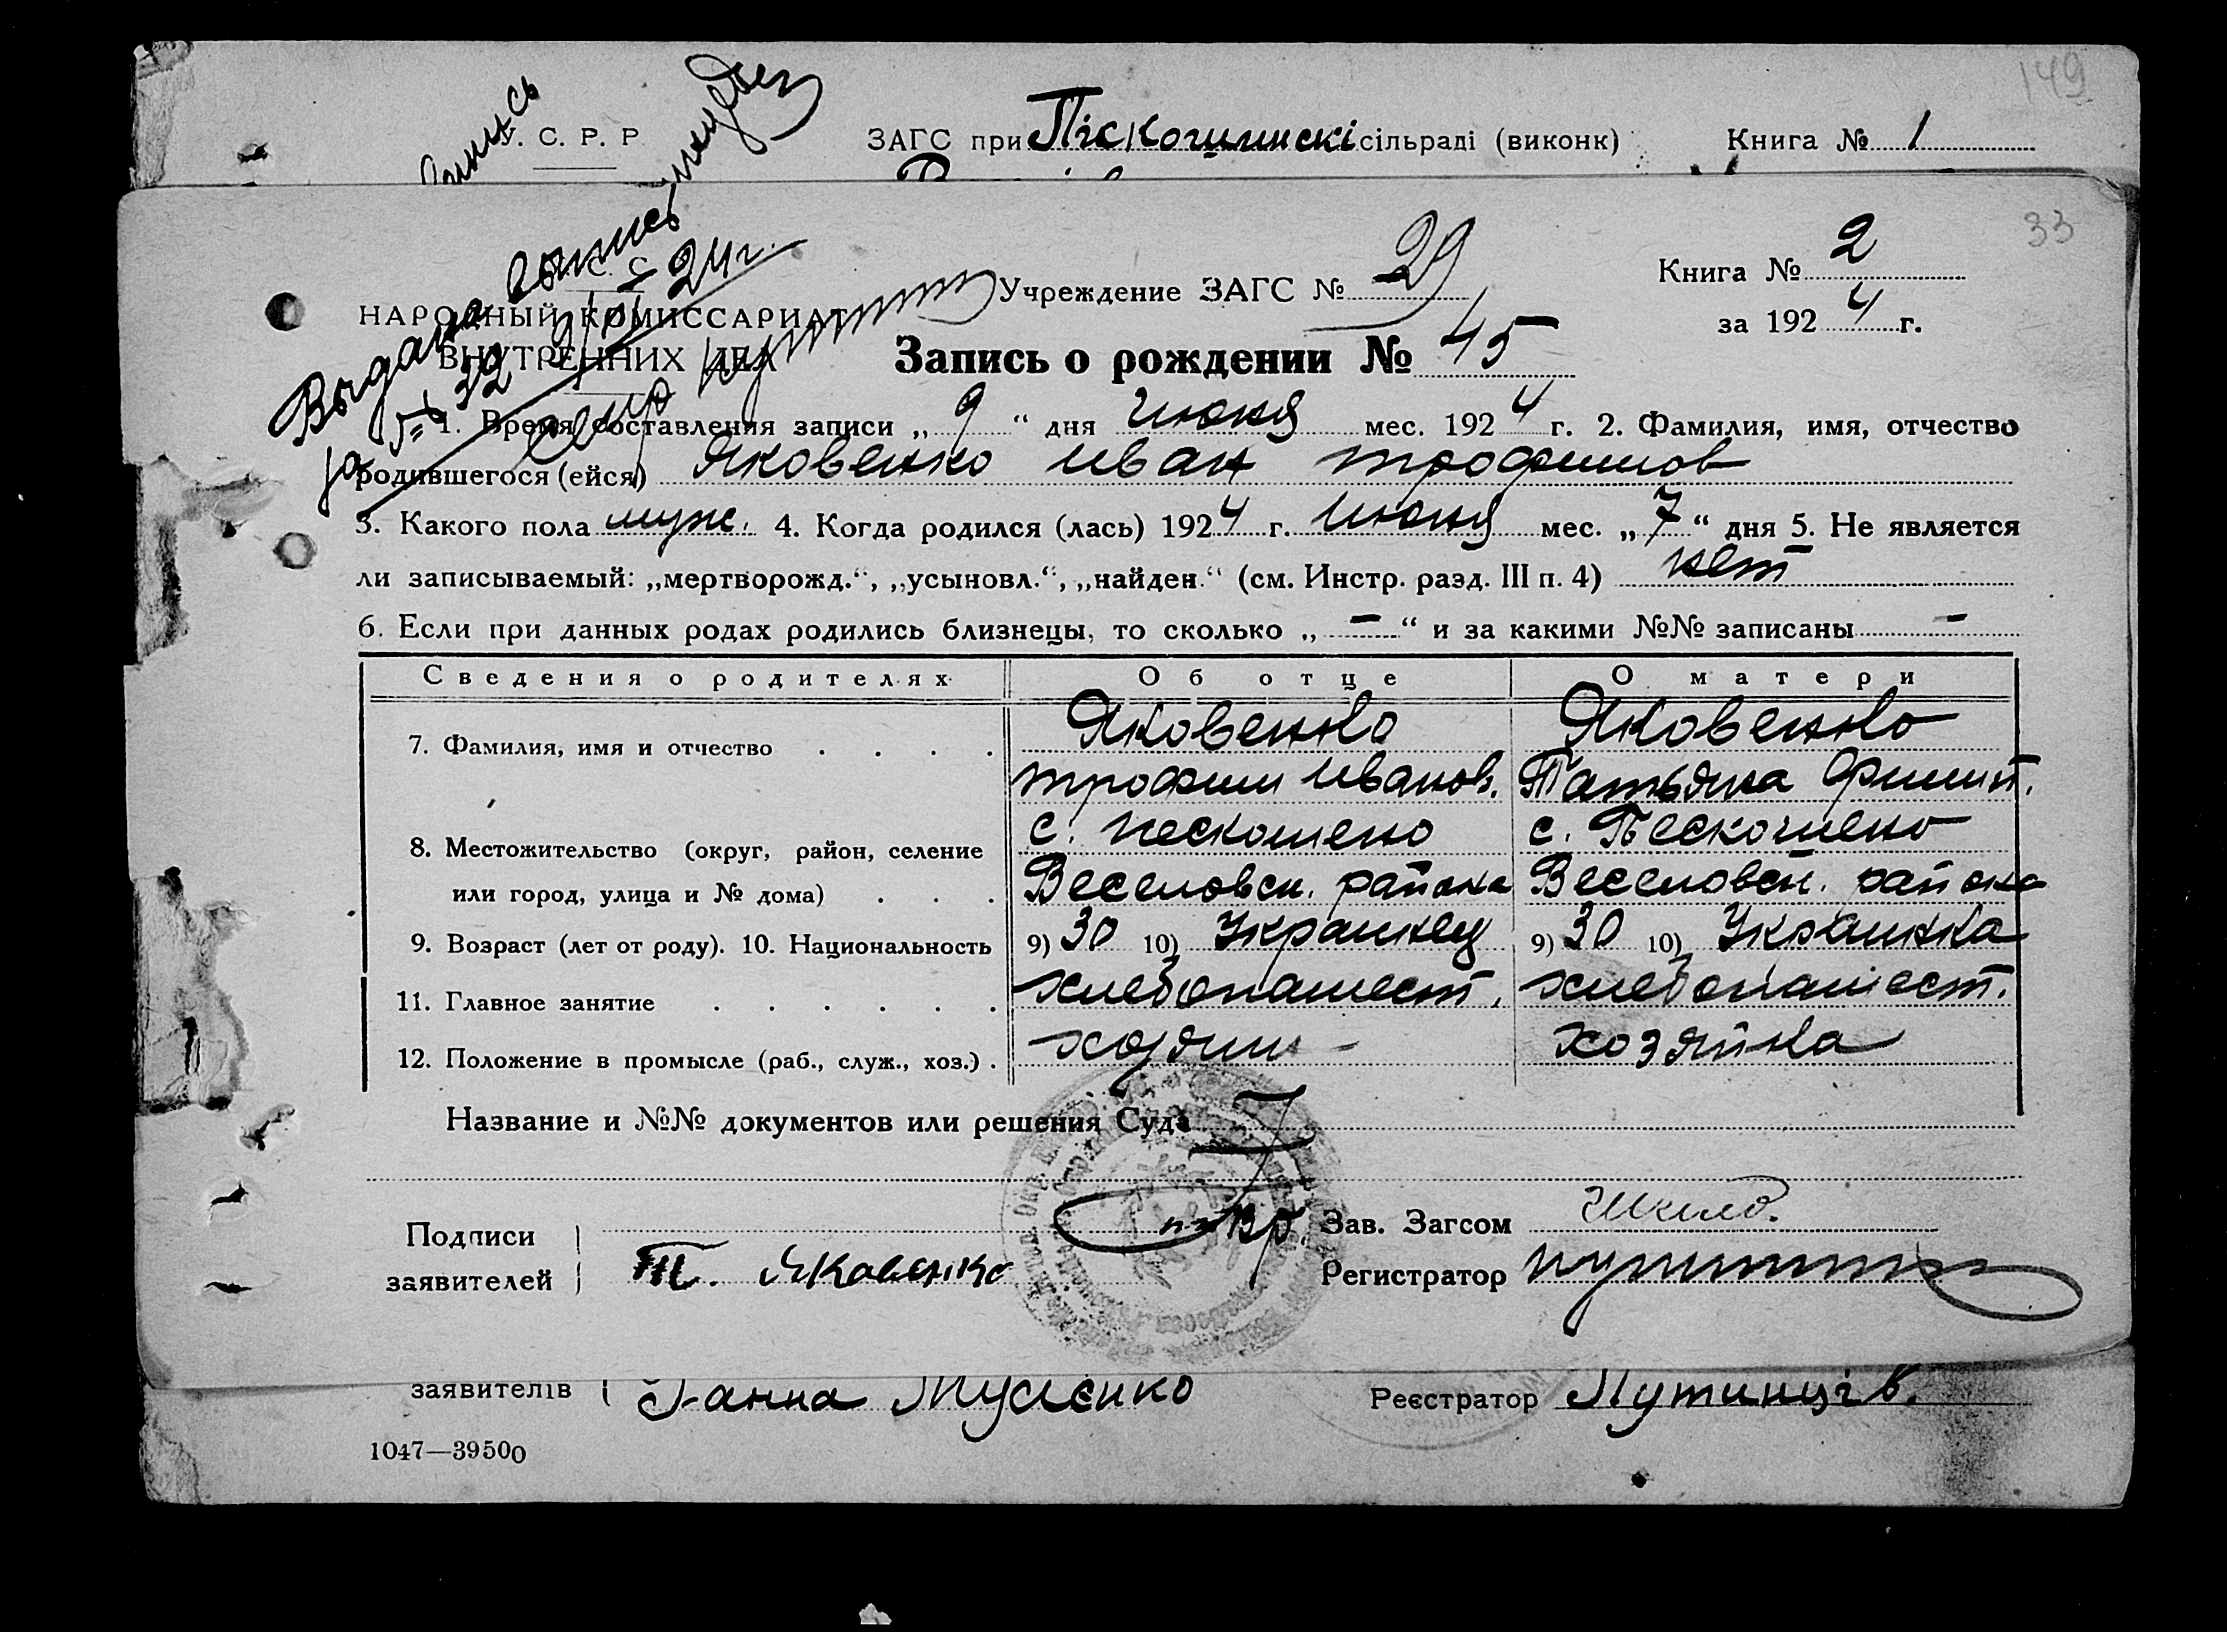 149
У. С. Р. Р.
ЗАГС при Піскошинскі сільраді (виконк) Книга № 1
33
Выдана выпись
за № 32 9/VI-24 г.
С. С.
НАРОДНЫЙ КОМИССАРИАТ
ВНУТРЕННИХ ДЕЛ
Учреждение ЗАГС № 29
Книга № 2
за 1924 г.
Запись о рождении № 45
1. Время составления записи „ 9 “ дня июня мес. 1924 г. 2. Фамилия, имя, отчество
родившегося (ейся) Яковенко Иван Трофимов
3. Какого пола муж. 4. Когда родился (лась) 1924 г. Июня мес. „ 7 “ дня 5. Не является
ли записываемый: „мертворожд.“, „усыновл.“, „найден.“ (см. Инстр. разд. III п. 4) нет
6. Если при данных родах родились близнецы, то сколько „ — “ и за какими №№ записаны —
Сведения о родителях Об отце О матери
7. Фамилия, имя и отчество Яковенко Яковенко
Трофим Иванов. Татьяна
8. Местожительство (округ, район, селение с. Пескошено с. Пескошено
или город, улица и № дома) Веселовск. района Веселовск. района
9. Возраст (лет от роду). 10. Национальность 9) 30 10) Украинец 9) 30 10) Украинка
11. Главное занятие хлебопашест. хлебопашест.
12. Положение в промысле (раб., служ., хоз.) хозяин — хозяйка
Название и №№ документов или решения Суда
Подписи
заявителей Т. Яковенко
Зав. Загсом
Регистратор
заявителів Ганна Мусієнко Реєстратор Путинців.
1047—39500